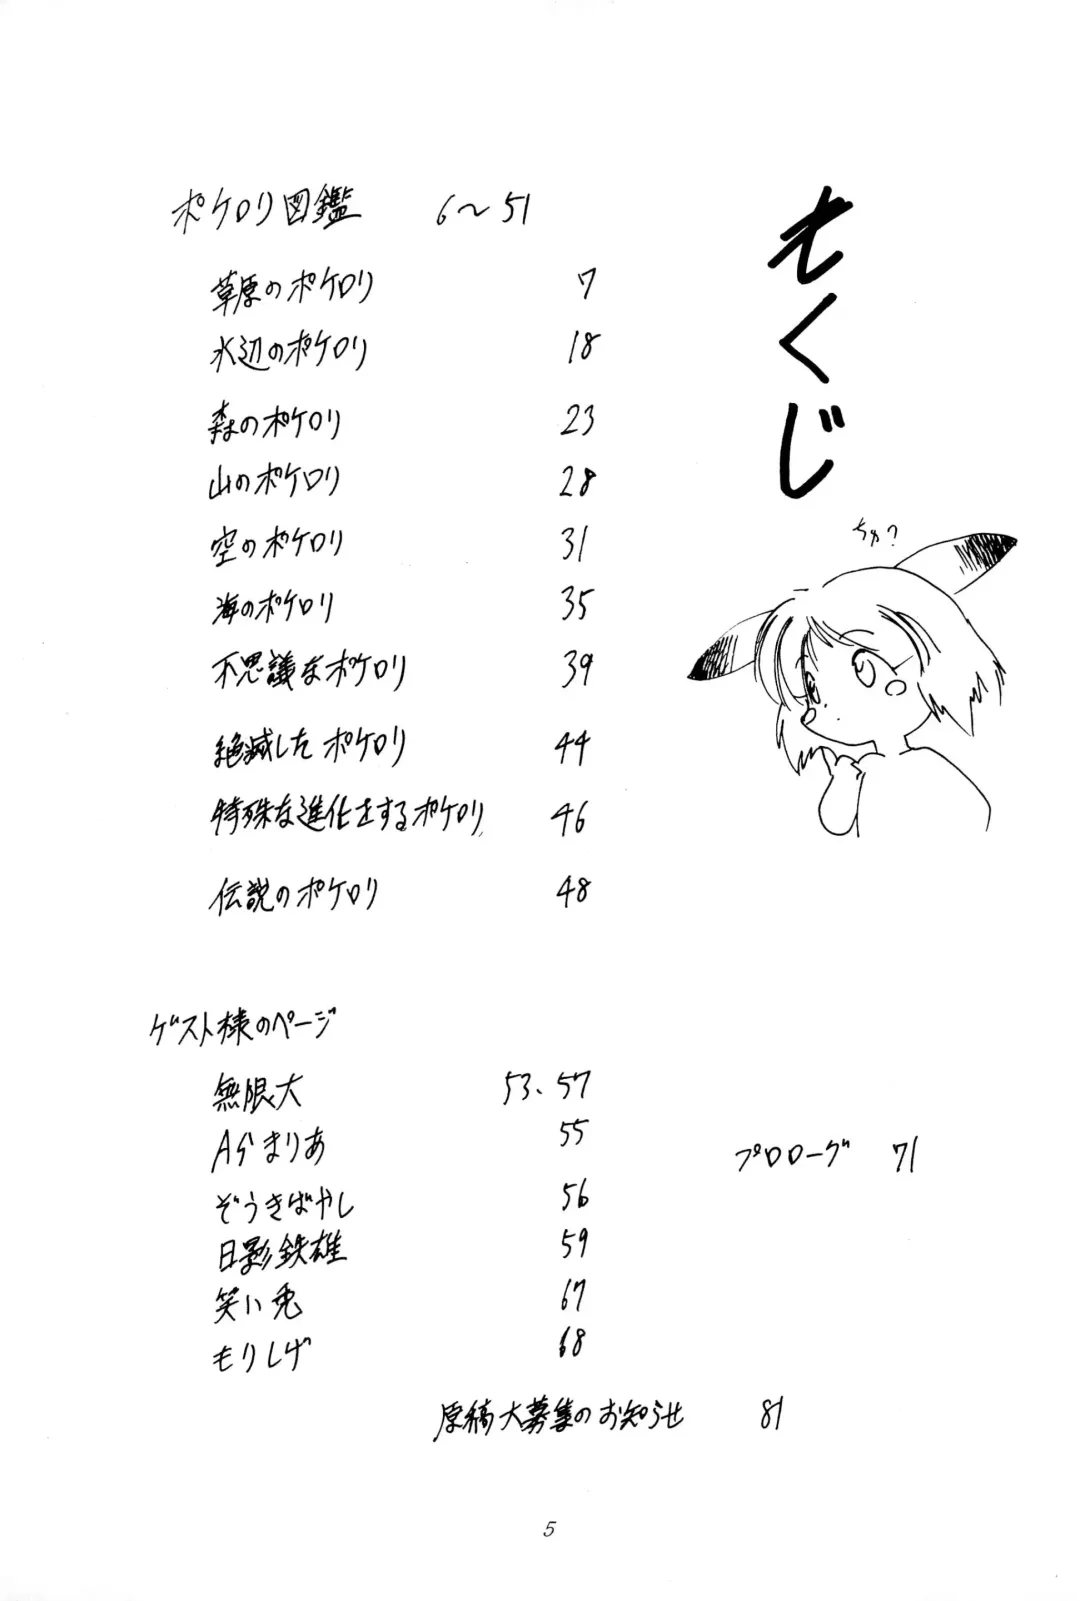 もくじ
ポケロリ図鑑 6〜51
草原のポケロリ 7
水辺のポケロリ 18
森のポケロリ 23
山のポケロリ 28
空のポケロリ 31
海のポケロリ 35
不思議なポケロリ 39
絶滅したポケロリ 44
特殊な進化をするポケロリ 46
伝説のポケロリ 48
ちゅ?
ゲスト様のページ
無限大 53、57
Aらまりあ 55
ぞうきばやし 56
日影鉄雄 59
笑い兎 67
もりしげ 68
プロローグ 71
原稿大募集のお知らせ 81
5